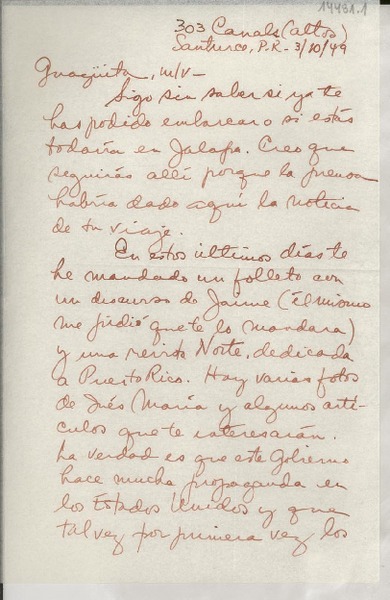 14431.1
303 Canals (altos)
Santurce, P.R. - 3/10/49
Guagüita, m/v-
Sigo sin saber si ya te
has podido embarcar o si estás
todavía en Jalapa. Creo que
seguirás allí porque la prensa
habría dado aquí la noticia
de tu viaje.
En estos últimos días te
he mandado un folleto con
un discurso de Jaime (él mismo
me pidió que te lo mandara)
y una revista Norte, dedicada
a Puerto Rico. Hay varias fotos
de Inés María y algunos artí-
culos que te interesarán.
La verdad es que este Gobierno
hace mucha propaganda en
los Estados Unidos y que
tal vez por primera vez los